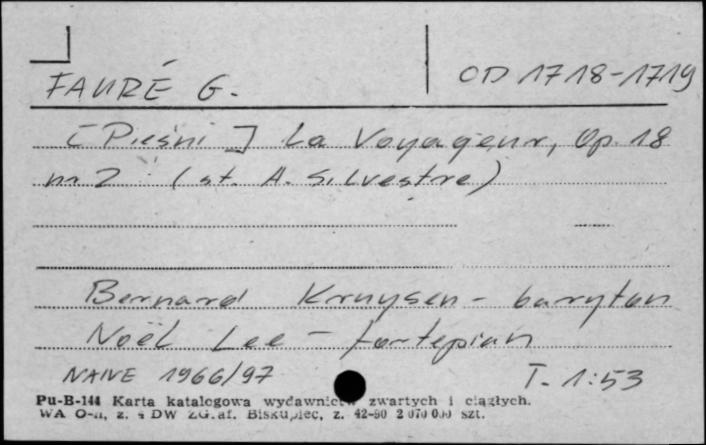 FAURÉ G.
OD 1718-1719
[Pieśni] La Voyageur, Op. 18
nr 2 (st. A. Silvestre)
Bernard Kruysen - baryton
Noël Lee - fortepian
NAIVE 1966/97
T. 1:53
Pu-B-144 Karta katalogowa wydawnictw zwartych i ciągłych.
WA O-n, z. 4 DW Zgraf. Biskupiec, z. 42-90 2 070 000 szt.